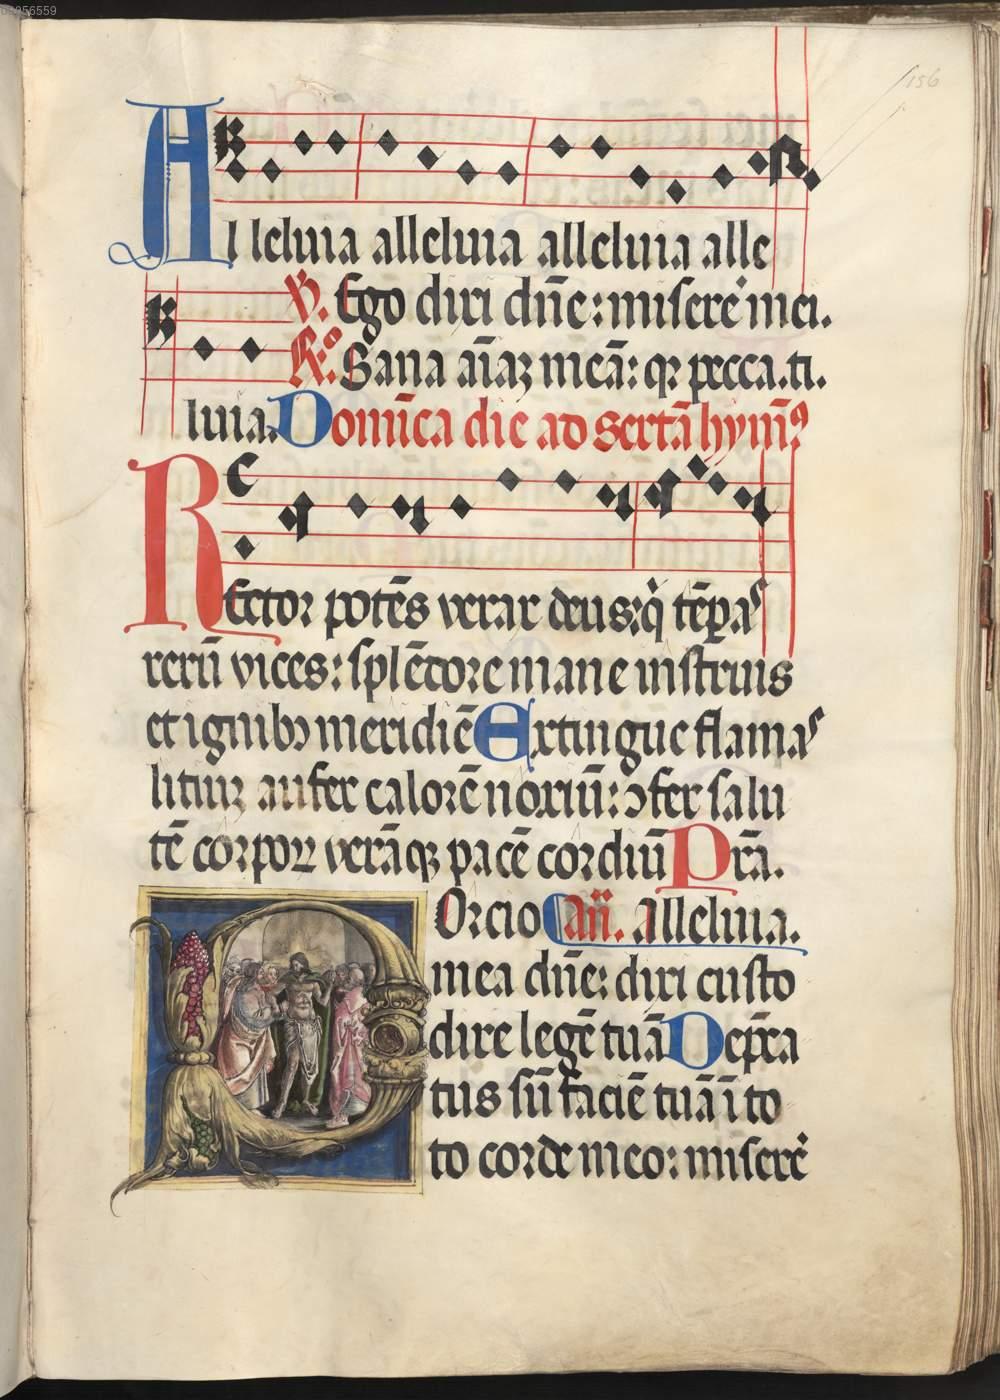 156
Alleluia alleluia alleluia alle
℣. Ego dixi dn̄e: miserē mei.
℟. Sana aīaꝫ meā: qꝛ peccaui ti.
luia. Domīca die ad sextā hymꝰ
Rector potēs verax deus: q̇ tēꝑas
rerū vices: splēdore mane instruis
et ignibꝰ meridiē Extingue flamas
litiuꝫ aufer calorē noxiū: ↄfer salu
tē corpoꝝ verāqꝫ pacē cordiū Prā.
Porcio Añ. Alleluia.
mea dn̄e: dixi custo
dire legē tuā Dep̄ca
tus sū faciē tuā ī to
to corde meo: miserē